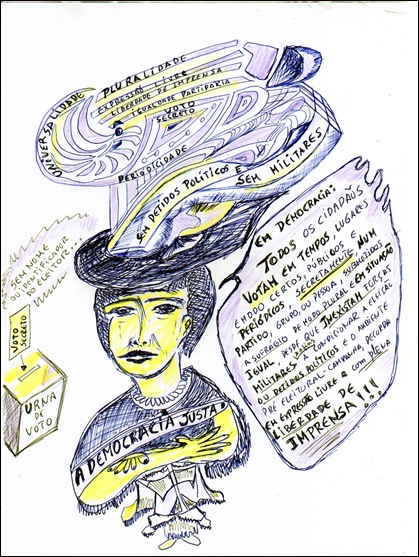 UNIVERSALIDADE
PLURALIDADE
EXPRESSÃO LIVRE
LIBERDADE DE IMPRENSA
IGUALDADE PARTIDÁRIA
VOTO
SECRETO
PERIODICIDADE
SEM DETIDOS POLÍTICOS E
SEM MILITARES
SEM NOME
OU IDENTIFICADOR
DE ELEITOR...
VOTO
SECRETO
URNA
DE
VOTO
A DEMOCRACIA JUSTA
EM DEMOCRACIA:
TODOS OS CIDADÃOS
VOTAM EM TEMPOS, LUGARES
E MODO CERTOS, PÚBLICOS E
PERIÓDICOS, SECRETAMENTE NUM
PARTIDO, GRUPO OU PESSOA, SUBMETIDOS
SUFRÁGIO DE MODO PLURAL E EM SITUAÇÃO
IGUAL DESDE QUE INEXISTAM FORÇAS
MILITARES CONDICIONADOR
OU DETIDOS POLÍTICOS E O AMBIENTE
PRÉ ELEITORAL - CAMPANHA, DECORRA
EM EXPRESSÃO LIVRE E com plena
LIBERDADE DE
IMPRENSA!!!